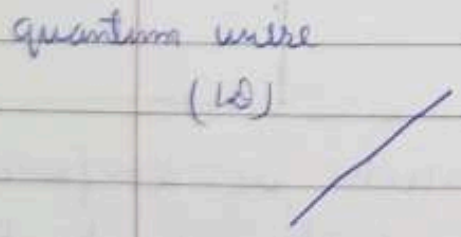 quantum wire
(1D)